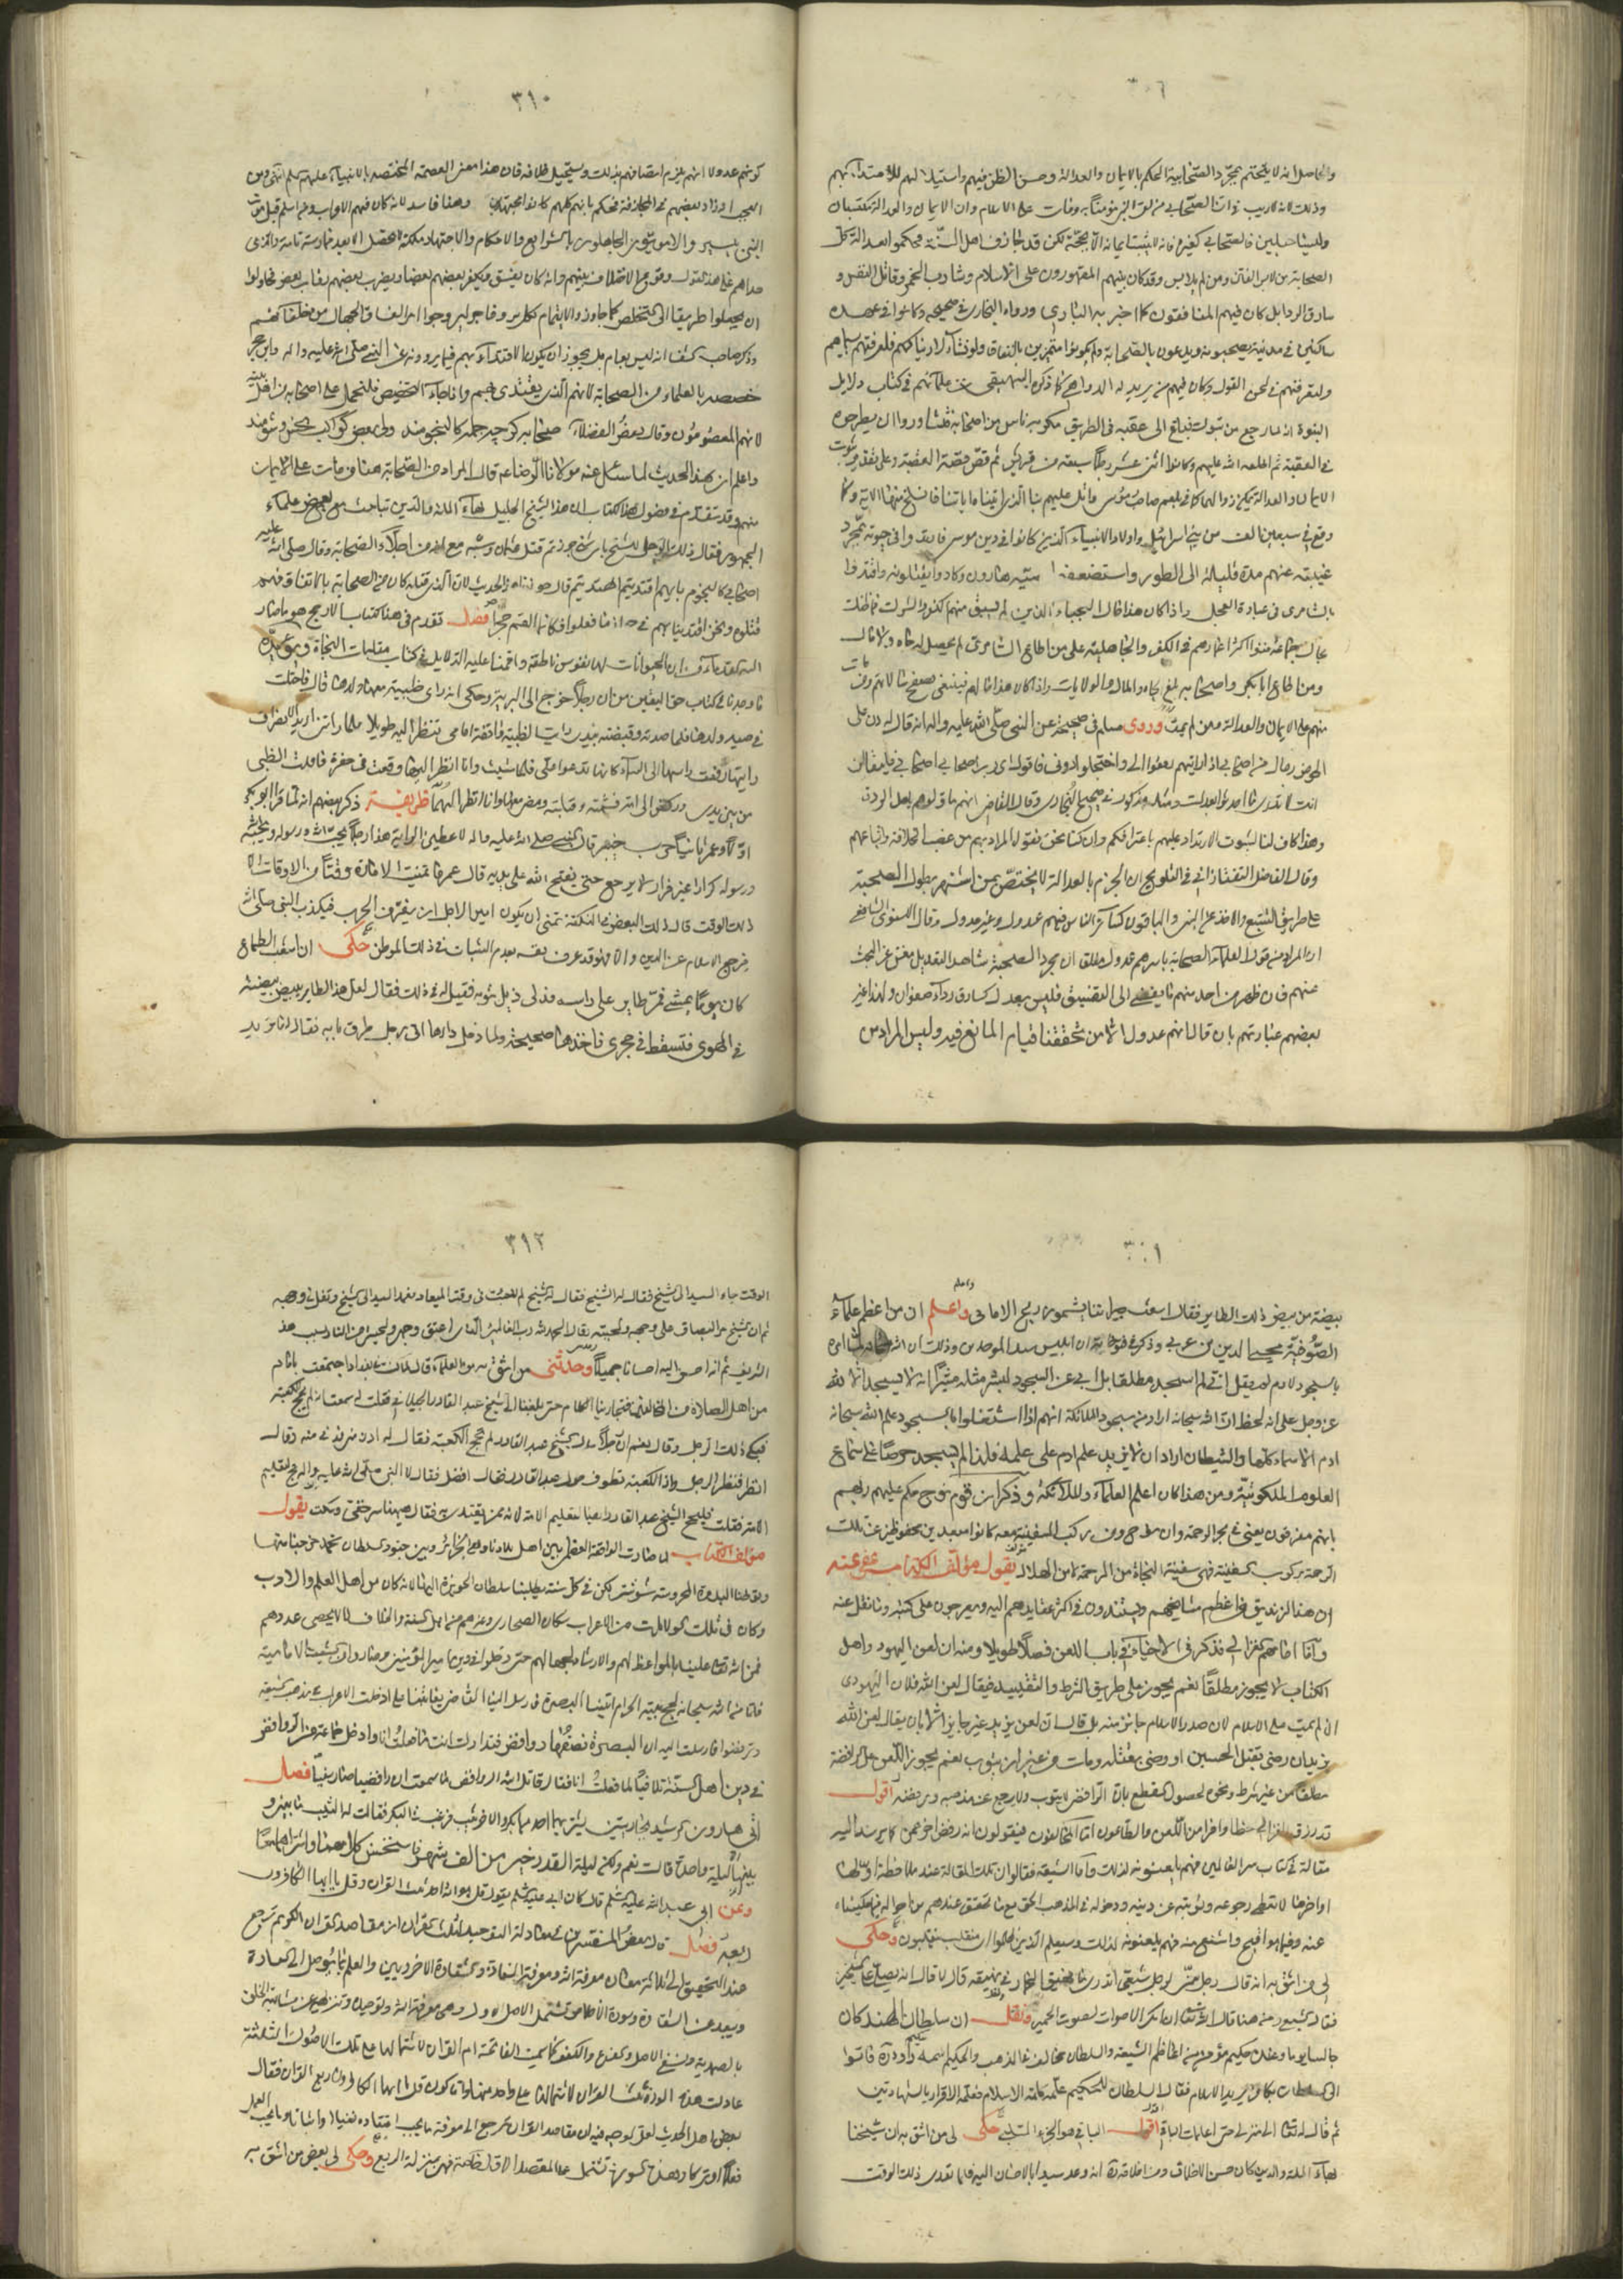 والحاصل انه لا يتحتم بمجرد الصحابية الحكم بالايمان والعدالة وحسن الظن فيهم واستيلا لهم للاقتداء بهم
وذلك لانه لا ريب في ان الصحابي من لقى النبي مؤمنا به ومات على الاسلام وان الايمان والعدالة مكتسبان
وليسا جبليين فالصحابي كغيره في انه لا يثبت ايمانه الا بحجة لكن قد جازف اهل السنة فحكموا بعدالة كل
الصحابة من لابس الفتن ومن لم يلابس وقد كان فيهم المقهورون على الاسلام وشارب الخمر وقاتل النفس و
سارق الردا بل كان فيهم المنافقون كما اخبر به الباري ورواه البخاري في صحيحه وكانوا في عهده
ساكنين في مدينته يصحبونه ويدعون بالصحابة ولم يكونوا متميزين بالنفاق ولو نشاء لاريناكهم فلعرفتهم بسيماهم
ولتعرفنهم في لحن القول وكان فيهم من يريد له الدواهي كما ذكره البيهقي من علمائهم في كتاب دلايل
النبوة انه لما رجع من تبوك فبلغ الى عقبة في الطريق مكر به ناس من اصحابه فتشاوروا ان يطرحوه
في العقبة ثم اطلعه الله عليهم وكانوا اثنى عشر رجلا سبعة من قريش ثم قص قصة العقبة وعلى تقدير ثبوت
الايمان والعدالة يمكن زوالهما كما في بلعم صاحب موسى واتل عليهم نبا الذي اتيناه اياتنا فانسلخ منها الاية وكما
وقع في سبعين الف من بني اسرائيل واولاد الانبياء الذين كانوا في دين موسى فارتدوا في حيوته بمجرد
غيبته عنهم مدة قليلة الى الطور واستضعفوا وصيه هارون وكادوا يقتلونه واقتدوا
بالسامري في عبادة العجل واذا كان هذا حال النجباء الذين لم يسبق منهم الكفر والشرك فما ظنك
بحال جماعة مضوا اكثر اعمارهم في الكفر والجاهلية على من اطاع السامري لم يحصل له جاه ولا مال
ومن اطاع ابا بكر واصحابه بلغ الجاه والمال والولايات واذا كان هذا حالهم فينبغي تصفح حالاتهم ومن مات
منهم على الايمان والعدالة ومن لم يمت وروى مسلم في صحيحه عن النبي صلى الله عليه واله انه قال ليردن على
الحوض رجال من اصحابي اذا رايتهم رفعوا الي واختلجوا دوني فاقول اي رب اصحابي اصحابي فليقالن
انك لا تدري ما احدثوا بعدك ومثله مذكور في صحيح البخاري وقال القاضي انهم ما قوله بعدك الردة
وهذا كاف لنا لثبوت الارتداد عليهم باعترافكم وان كنا نحن نقول المراد بهم من غصب الخلافة واتباعهم
وقال الفاضل التفتازاني في التلويح ان الجزم بالعدالة لا يختص بمن اشتهر بطول الصحبة
على طريق التتبع والاخذ عن النبي والباقون كسائر الناس فيهم عدول وغير عدول وقال الاسنوي الشافعي
ان المراد من قول العلماء الصحابة باسرهم عدول مطلقا ان مجرد الصحبة شاهد التعديل مغن عن البحث
عنهم فان ظهر من احد منهم ما يفضي الى التفسيق فليس بعدل كسارق رداء صفوان ولهذا غير
بعضهم عبارتهم بان قال انهم عدول الا من تحققنا قيام المانع فيه وليس المراد من
٣١٠
كونهم عدولا انهم يلزم اتصافهم بذلك ويستحيل خلافه فان هذا معنى العصمة المختصة بالانبياء عليهم السلم انتهى ومن
العجب انه زاد بعضهم في المجازفة فحكم بانهم كلهم كانوا مجتهدين وهذا فاسد لانه كان فيهم الاعراب ومن اسلم قبل موت
النبي بيسير والاميون الجاهلون بالشرايع والاحكام والاجتهاد ملكة لا تحصل الا بعد ممارسة تامة والذي
حداهم على هذا القول وقوع الاختلاف بينهم وانه كان يفسق ويكفر بعضهم بعضا ويضرب بعضهم رقاب بعض فحاولوا
ان يجعلوا طريقا الى التخلص كما جاوزوا الايتمام بكل بر وفاجر ليروجوا امر الفساق الجهال من خلفائهم
وذكر صاحب كشف انه ليس بعام بل يجوز ان يكون الاقتداء بهم فيما يروونه عن النبي صلى الله عليه واله وابن حجر
خصصه بالعلماء من الصحابة لانهم الذين يقتدى بهم واذا جاء التخصيص فلنحمل على اصحابه من اهل بيته
لانهم المعصومون وقال بعض الفضلاء صحابه كرچه جمله كالنجومند ولى بعض كواكب نحس وشومند
واعلم ان هذا الحديث لما سئل عنه مولانا الرضا عه قال المراد من الصحابة هنا من مات على الايمان
منهم وقد تقدم في فصول هذا الكتاب ان هذا الشيخ الجليل بهاء الملة والدين تباحث مع بعض علماء
الجمهور فقال ذلك الرجل للشيخ باي شئ جوزتم قتل عثمان وسبه مع انه من اجلاء الصحابة وقال صلى الله عليه
اصحابي كالنجوم بايهم اقتديتم اهتديتم قال جوزناه لهذا الحديث لان الذي قتله كان من الصحابة بالاتفاق فنحن
قتلوه ونحن اقتدينا بهم في جواز ما فعلوا فكانما القم حجرا فصل تقدم في هذا الكتاب ان الارجح هو ما صار
اليه القدماء من ان الحيوانات لها نفوس ناطقة واقمنا عليه الدلايل في كتاب مقامات النجاة ويؤيده
ما وجدنا في كتاب حق اليقين من ان رجلا خرج الى البرية وحكى انه راى ظبية معها ولدها قال فاحتلت
في صيد ولدها فلما صدته وقبضته بيدي رايت الظبية واقفة امامي تنظر اليه طويلا فلما رات اني اريد الانصراف
رايتها رفعت راسها الى السماء كانها تدعو علي فلما مشيت وانا انظر اليها وقعت في حفرة فافلت الظبي
من بين يدي وركض الى امه فشمته وقبلته ومضى معها وانا انظر اليهما ظريفة ذكر بعضهم انه لما فر ابو بكر
اولا وعمر ثانيا في حرب خيبر قال النبي صلى الله عليه واله لاعطين الراية غدا رجلا يحب الله ورسوله ويحبه الله
ورسوله كرارا غير فرار لا يرجع حتى يفتح الله على يديه قال عمر فما تمنيت الامارة وقتا من الاوقات الا
ذلك الوقت قال ذلك البعض ما النكتة تمنى ان يكون امير الاجل ان يفر من الحرب فيكذب النبي صلى الله
فيرجع الاسلام عن الدين والا فهو قد عرف نفسه بعدم الثبات في ذلك الموطن حكى ان اشعب الطماع
كان يوما يمشي فمر طاير على راسه فدلى ذيل ثوبه فقيل له في ذلك فقال لعل هذا الطاير يبيض بيضته
في الهوى فتسقط في حجري فاخذها صحيحة ولما دخل دارها اتى رجل طرق بابه فقال انا تريد
بيضة من بيض ذلك الطاير فقال اشعب جيراننا يشمون ريح الاماني واعلم ان من اعظم علماء
الصوفية محيي الدين بن عربي وذكر في فتوحاته ان ابليس سيد الموحدين وذلك ان الله سبحانه لما امره
بالسجود لادم لم يقل اني لم اسجد مطلقا بل ابى عن السجود لبشر مثله مشيرا انه لا يسجد الا لله
عز وجل على انه لحظ ان الله سبحانه اراد من سجود الملائكة انهم اذا اشتغلوا بالسجود علم الله سبحانه
ادم الاسماء كلها والشيطان اراد ان لا يزيد علم ادم على علمه فلذا لم يسجد حرصا على سماع
العلوم الملكوتية ومن هذا كان اعلم العلماء والملائكة وذكر ان قوم نوح حكم عليهم ربهم
بانهم مغرقون يعني في بحر الرحمة وان نوح ومن ركب السفينة معه كانوا مبعدين محفوظين عن تلك
الرحمة بركوب السفينة فهي سفينة النجاة من الرحمة لا من الهلاك يقول مؤلف الكتاب عفى عنه
ان هذا الزنديق من اعظم مشايخهم ويستندون في اكثر عقايدهم اليه ويعرجون على كتبه وما نقل عنه
واما امامهم الغزالي فذكر في الاحياء في باب اللعن فصلا طويلا ومنه ان لعن اليهود واهل
الكتاب لا يجوز مطلقا نعم يجوز على طريق الشرط والتقييد فيقال لعن الله فلان اليهودي
ان لم يمت على الاسلام لان صدر الاسلام جايز منه بل قال ان لعن يزيد غير جايز الا بان يقال لعن الله
يزيد ان رضى بقتل الحسين او رضى بقتله ومات من غير ان يتوب نعم يجوز اللعن على الرافضة
مطلقا من غير شرط ونحوه لحصول القطع بان الرافضي لا يتوب ولا يرجع عن مذهبه ورفضه اقول
قد رزق الغزالي حظا وافرا من اللعن والطاعون اما المخالفون فيقولون انه رفض اخر عمره كما يرشد اليه
مقالة في كتاب سر العالمين فهم يلعنونه لذلك واما الشيعة فقالوا ان تلك المقالة عند ملاحظة اولها
واخرها لا تعطي رجوعه وتوبته عن دينه ودخوله في المذهب الحق مع ما تحقق عندهم من احواله فيما حكيناه
عنه وفيما هو اقبح واشنع منه فهم يلعنونه لذلك وسيعلم الذين ظلموا اي منقلب ينقلبون وحكى
لي من اثق به انه قال رجل سني لرجل شيعي اتدري ما يقول الحمار في نهيقه قال لا قال انه يصلي على الشيخين
فقال الشيعي ومن هنا قال الله تعالى ان انكر الاصوات لصوت الحمير ونقل ان سلطان الهند كان
جالسا يوما وعنده حكيم مؤمن من اعاظم الشيعة والسلطان مخالف في المذهب والحكيم اسمه داود فاتوا
الى السلطان بكافر يريد الاسلام فقال السلطان للحكيم علمه كلمة الاسلام فعلمه الاقرار بالشهادتين
ثم قال له تعال الى منزلي حتى اعلمك الباقي اقول الباقي هو الجزء الثالث حكى لي من اثق به ان شيخنا
بهاء الملة والدين كان حسن الاخلاق ومن اخلاقه انه وعد سيدا بالاحسان اليه فلما تعدى ذلك الوقت
٣١٢
الوقت جاء السيد الى الشيخ فقال له الشيخ لم تعبت في وقت الميعاد فغمد السيد الى الشيخ وتفل في وجهه
ثم ان الشيخ مسح البصاق على وجهه ولحيته وقال الحمد لله رب العالمين الذي اعتق وجهي ولحيتي من النار بسبب هذا
الشريف ثم انه احسن اليه احسانا جميلا وحدثني من اثق به من العلماء قال كان في بغداد اجتمعت بعالم
من اهل الصلاة من المخالفين فتجارينا الكلام حتى بلغنا الى الشيخ عبد القادر الجيلاني فقلت له سمعت انه لم يحج الكعبة
فبكى ذلك الرجل وقال نعم ان رجلا سال الشيخ عبد القادر لم لم تحج الكعبة فقال له ادن مني فدنى منه وقال
انظر فنظر الرجل واذا الكعبة تطوف حول عبد القادر فقال افضل فقال لا النبي صلى الله عليه واله حج لتعليم
الامة فقلت فليحج الشيخ عبد القادر ايضا لتعليم الامة لانه ممن يقتدى به فقال ههنا سر خفي وسكت يقول
مؤلف الكتاب لما صارت الواقعة العظمى بين اهل بلادنا وهي الجزائر وبين جنود السلطان محمد خرجنا منها
وتوطنا البلدة المحروسة شوشتر لكن في كل سنة يطلبنا سلطان الحويزة اليها لانه كان من اهل العلم والادب
وكان في تلك الولايات من الاعراب سكان الصحاري وغيرهم من اهل السنة والخلاف ما لا يحصى عددهم
فمن الله تعالى علينا بالمواعظ لهم والارشاد لجهالهم حتى دخلوا في دين امير المؤمنين وصاروا من الشيعة الامامية
فلما من الله سبحانه بحج بيته الحرام اتينا البصرة فارسل الينا القاضي بقايا منها على ادخلت الاعراب في مذهب الشيعة
وترفضوا فارسلت اليه ان البصرة نصفها روافض فتدارك انت ما فعلت انا وادخل جماعة من الروافض
في دين اهل السنة تلافيا لما فعلت انا فقال قاتل الله الروافض ما سمعت ان رافضيا صار سنيا فصل
اتى هارون الرشيد بجاريتين يشتريهما احدهما بكر والاخرى ثيب فرغب في البكر فقالت له الثيب ما بيني و
بينها الا ليلة واحدة قالت نعم ولكن ليلة القدر خير من الف شهر فاستحسن كلامهما واشتراهما معا
وعن ابي عبد الله عليه السلم قال كان ابي عليه السلم يقول قل هو الله احد ثلث القران وقل يا ايها الكافرون
ربعه فصل قال بعض المفسرين في معادلة التوحيد لثلث القران ان مقاصد القران الكريم ترجع
عند التحقيق الى ثلاثة معان معرفة الله ومعرفة السعادة والشقاوة الاخرويين والعلم بما يوصل الى السعادة
ويبعد عن الشقاوة وسورة الاخلاص تشتمل الاصل الاول وهي معرفة الله وتوحيده وتنزيهه عن مشابهة الخلق
بالصمدية ونفي الاصل والفرع والكفو كما سميت الفاتحة ام القران لاشتمالها على تلك الاصول الثلاثة
عادلت هذه السورة ثلث القران لاشتمالها على واحد منها واما كون قل يا ايها الكافرون ربع القران فقال
بعض اهل الحديث لعل الوجه فيه ان مقاصد القران ترجع الى معرفة ما يجب اعتقاده نفيا واثباتا وما يجب العمل
فعلا او تركا وهذه السورة تشتمل على المقصد الاول خاصة فهي بمنزلة الربع وحكى لي بعض من اثق به